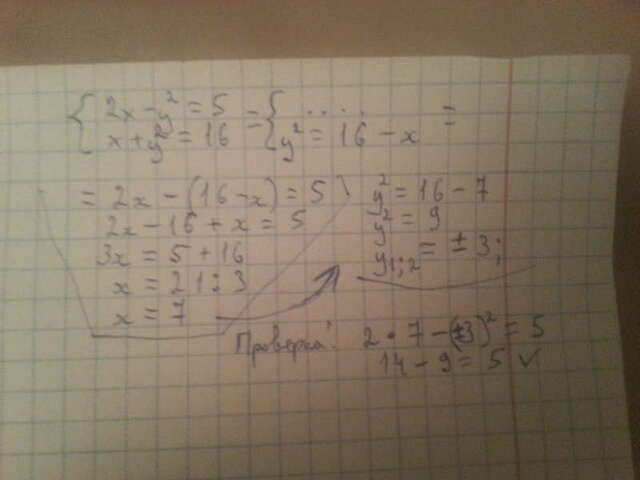 { 2x - y² = 5 = { ....
x + y² = 16 y² = 16 - x =
= 2x - (16 - x) = 5
2x - 16 + x = 5
3x = 5 + 16
x = 21 : 3
x = 7
y² = 16 - 7
y² = 9
y1;2 = ±3;
Проверка: 2 • 7 - (±3)² = 5
14 - 9 = 5 ✓